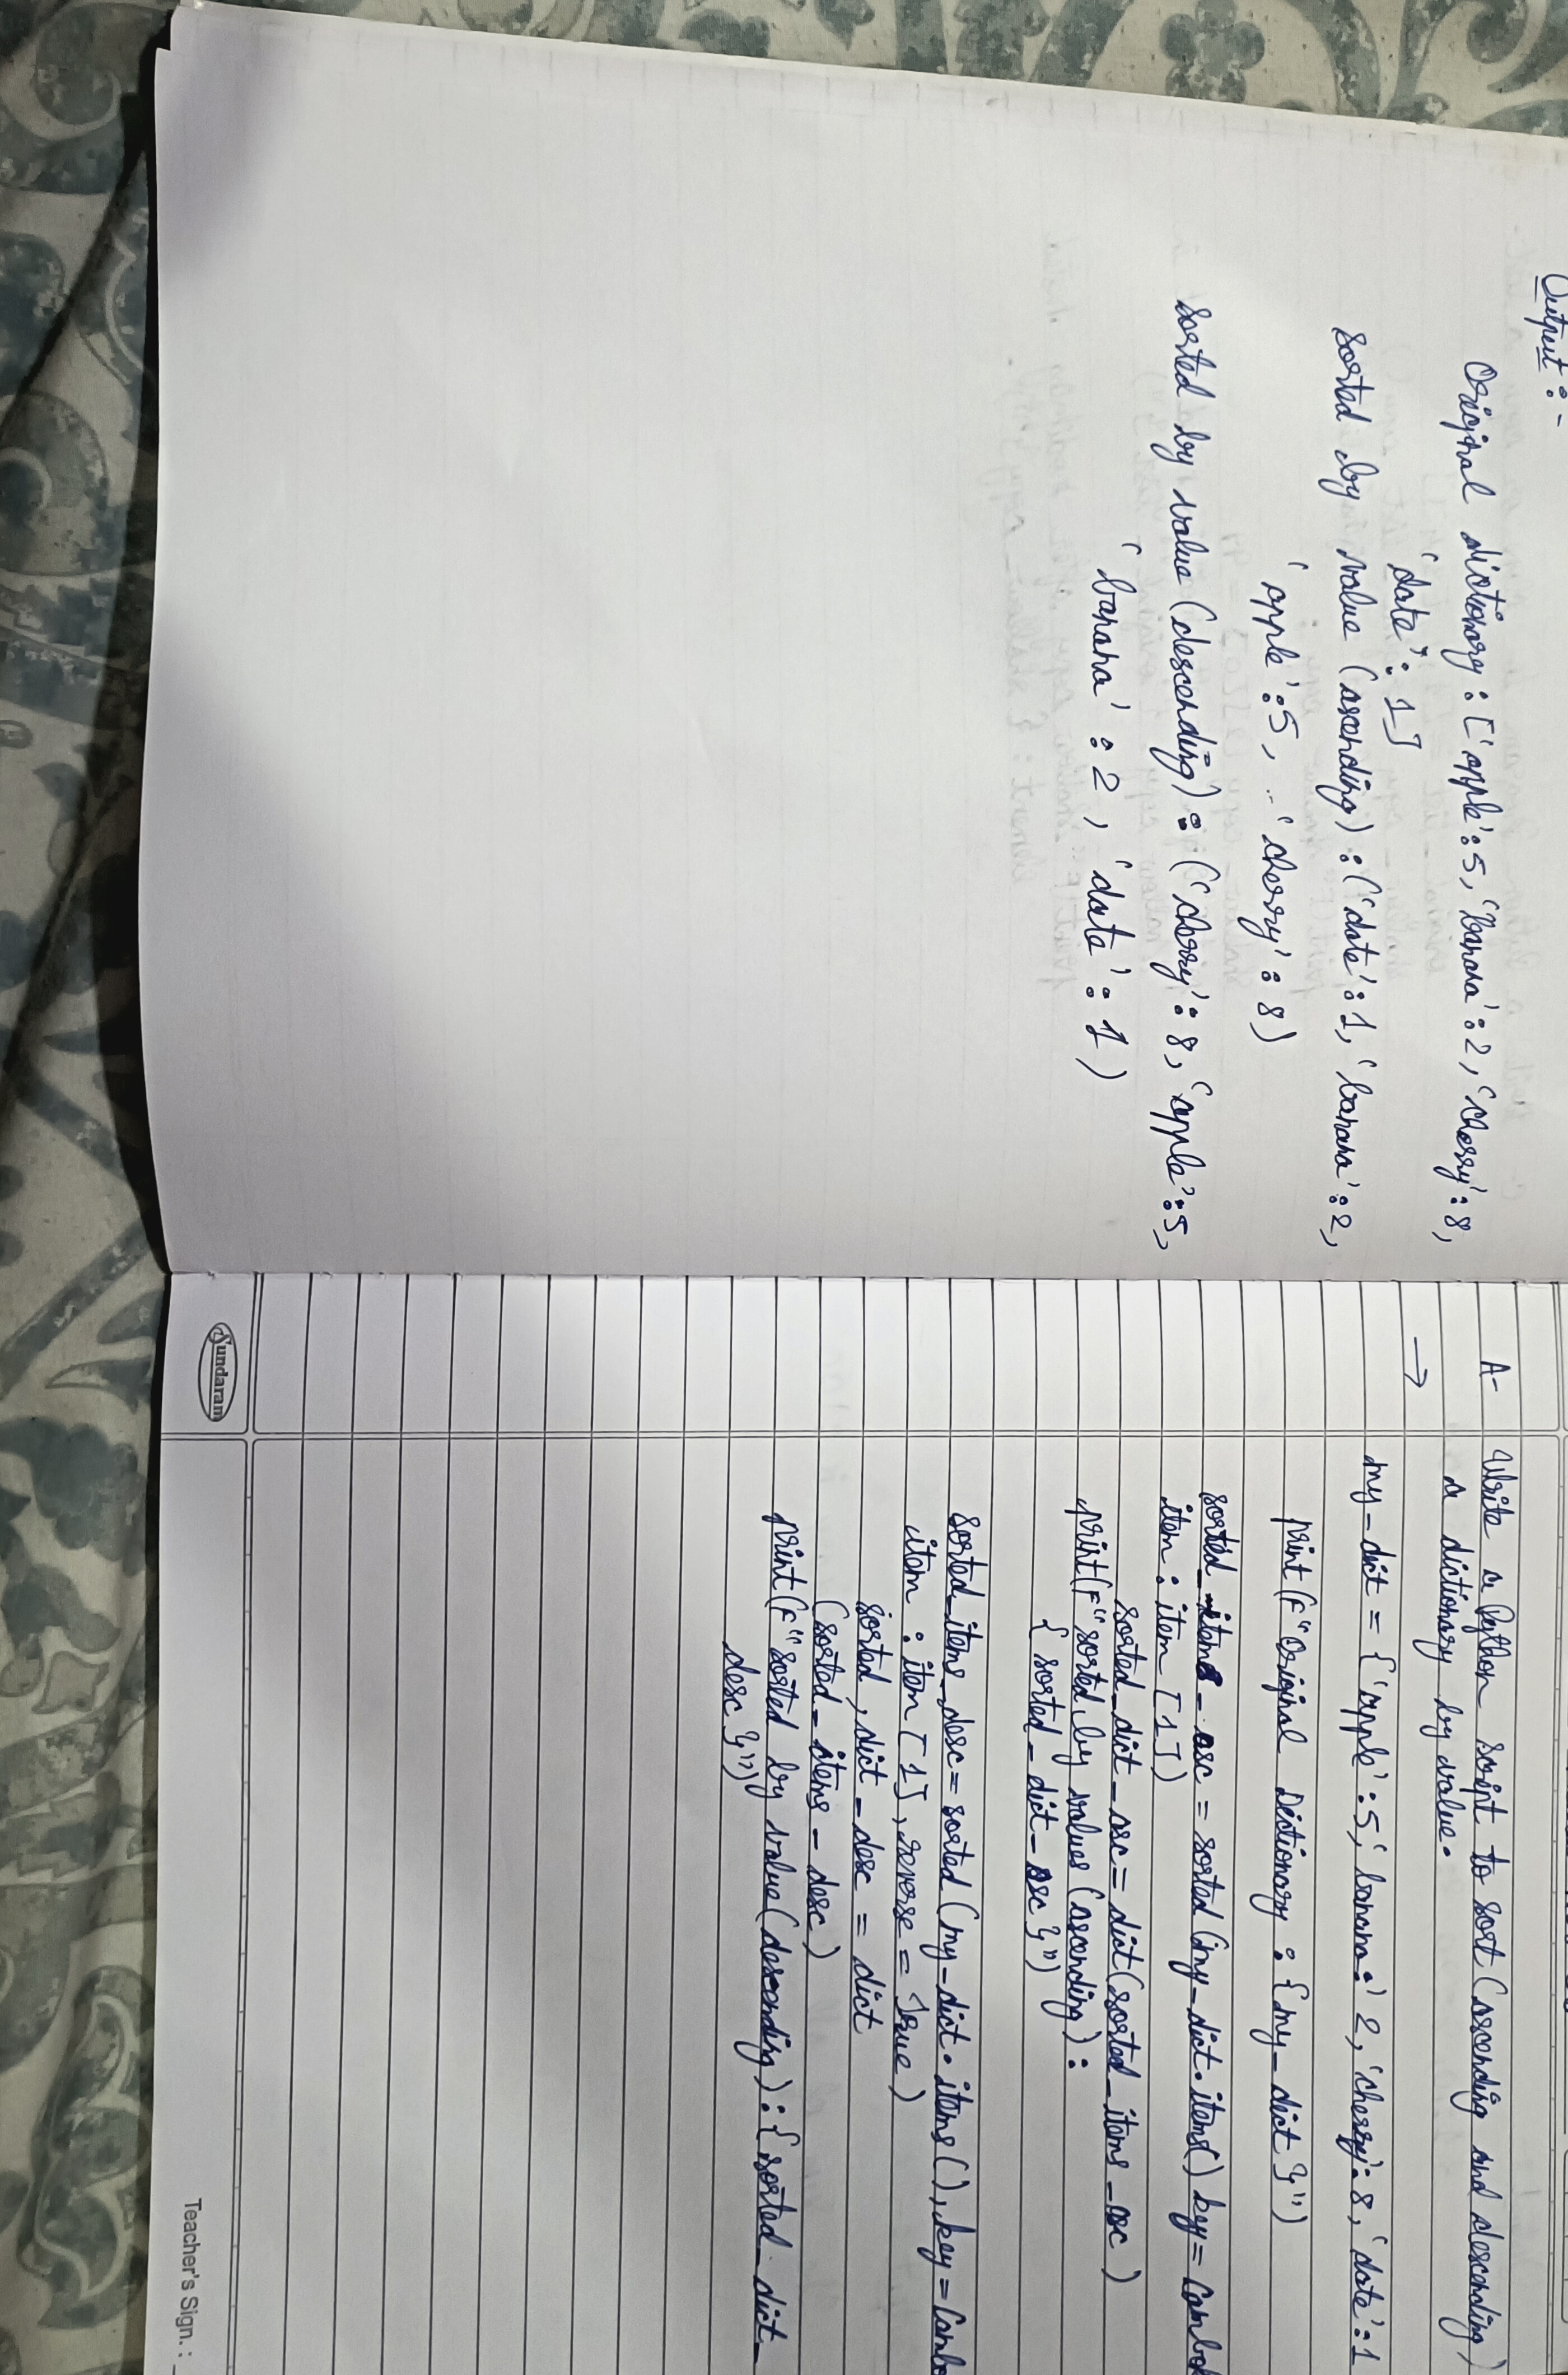 Output :-
Original dictionary : ['apple':5, 'Banana':2, 'cherry':8,
'date': 1]
sorted by value (ascending) : ('date':1, 'banana':2,
'apple':5, 'cherry':8)
Sorted by value (descending) : ('cherry': 8, 'apple':5,
'banana' : 2, 'date': 1)
A- Write a Python script to sort (ascending and descending)
a dictionary by value.
→
my_dict = {'apple':5,' banana:' 2, 'cherry': 8, 'date':1
print (F"Original Dictionary : {my_dict }")
sorted_items_asc = sorted (my_dict.items() key=
item : item [1])
sorted_dict_asc = dict(sorted_items_asc )
print(F"sorted by values (ascending) :
{ sorted_dict_asc }")
sorted_items_desc = sorted (my_dict.items(), key =
item : item [1], reverse = True )
sorted , dict_desc = dict
(sorted_items_desc )
print(F"sorted by value(descending) : { sorted_dict_
desc }")
Sundaram
Teacher's Sign. :